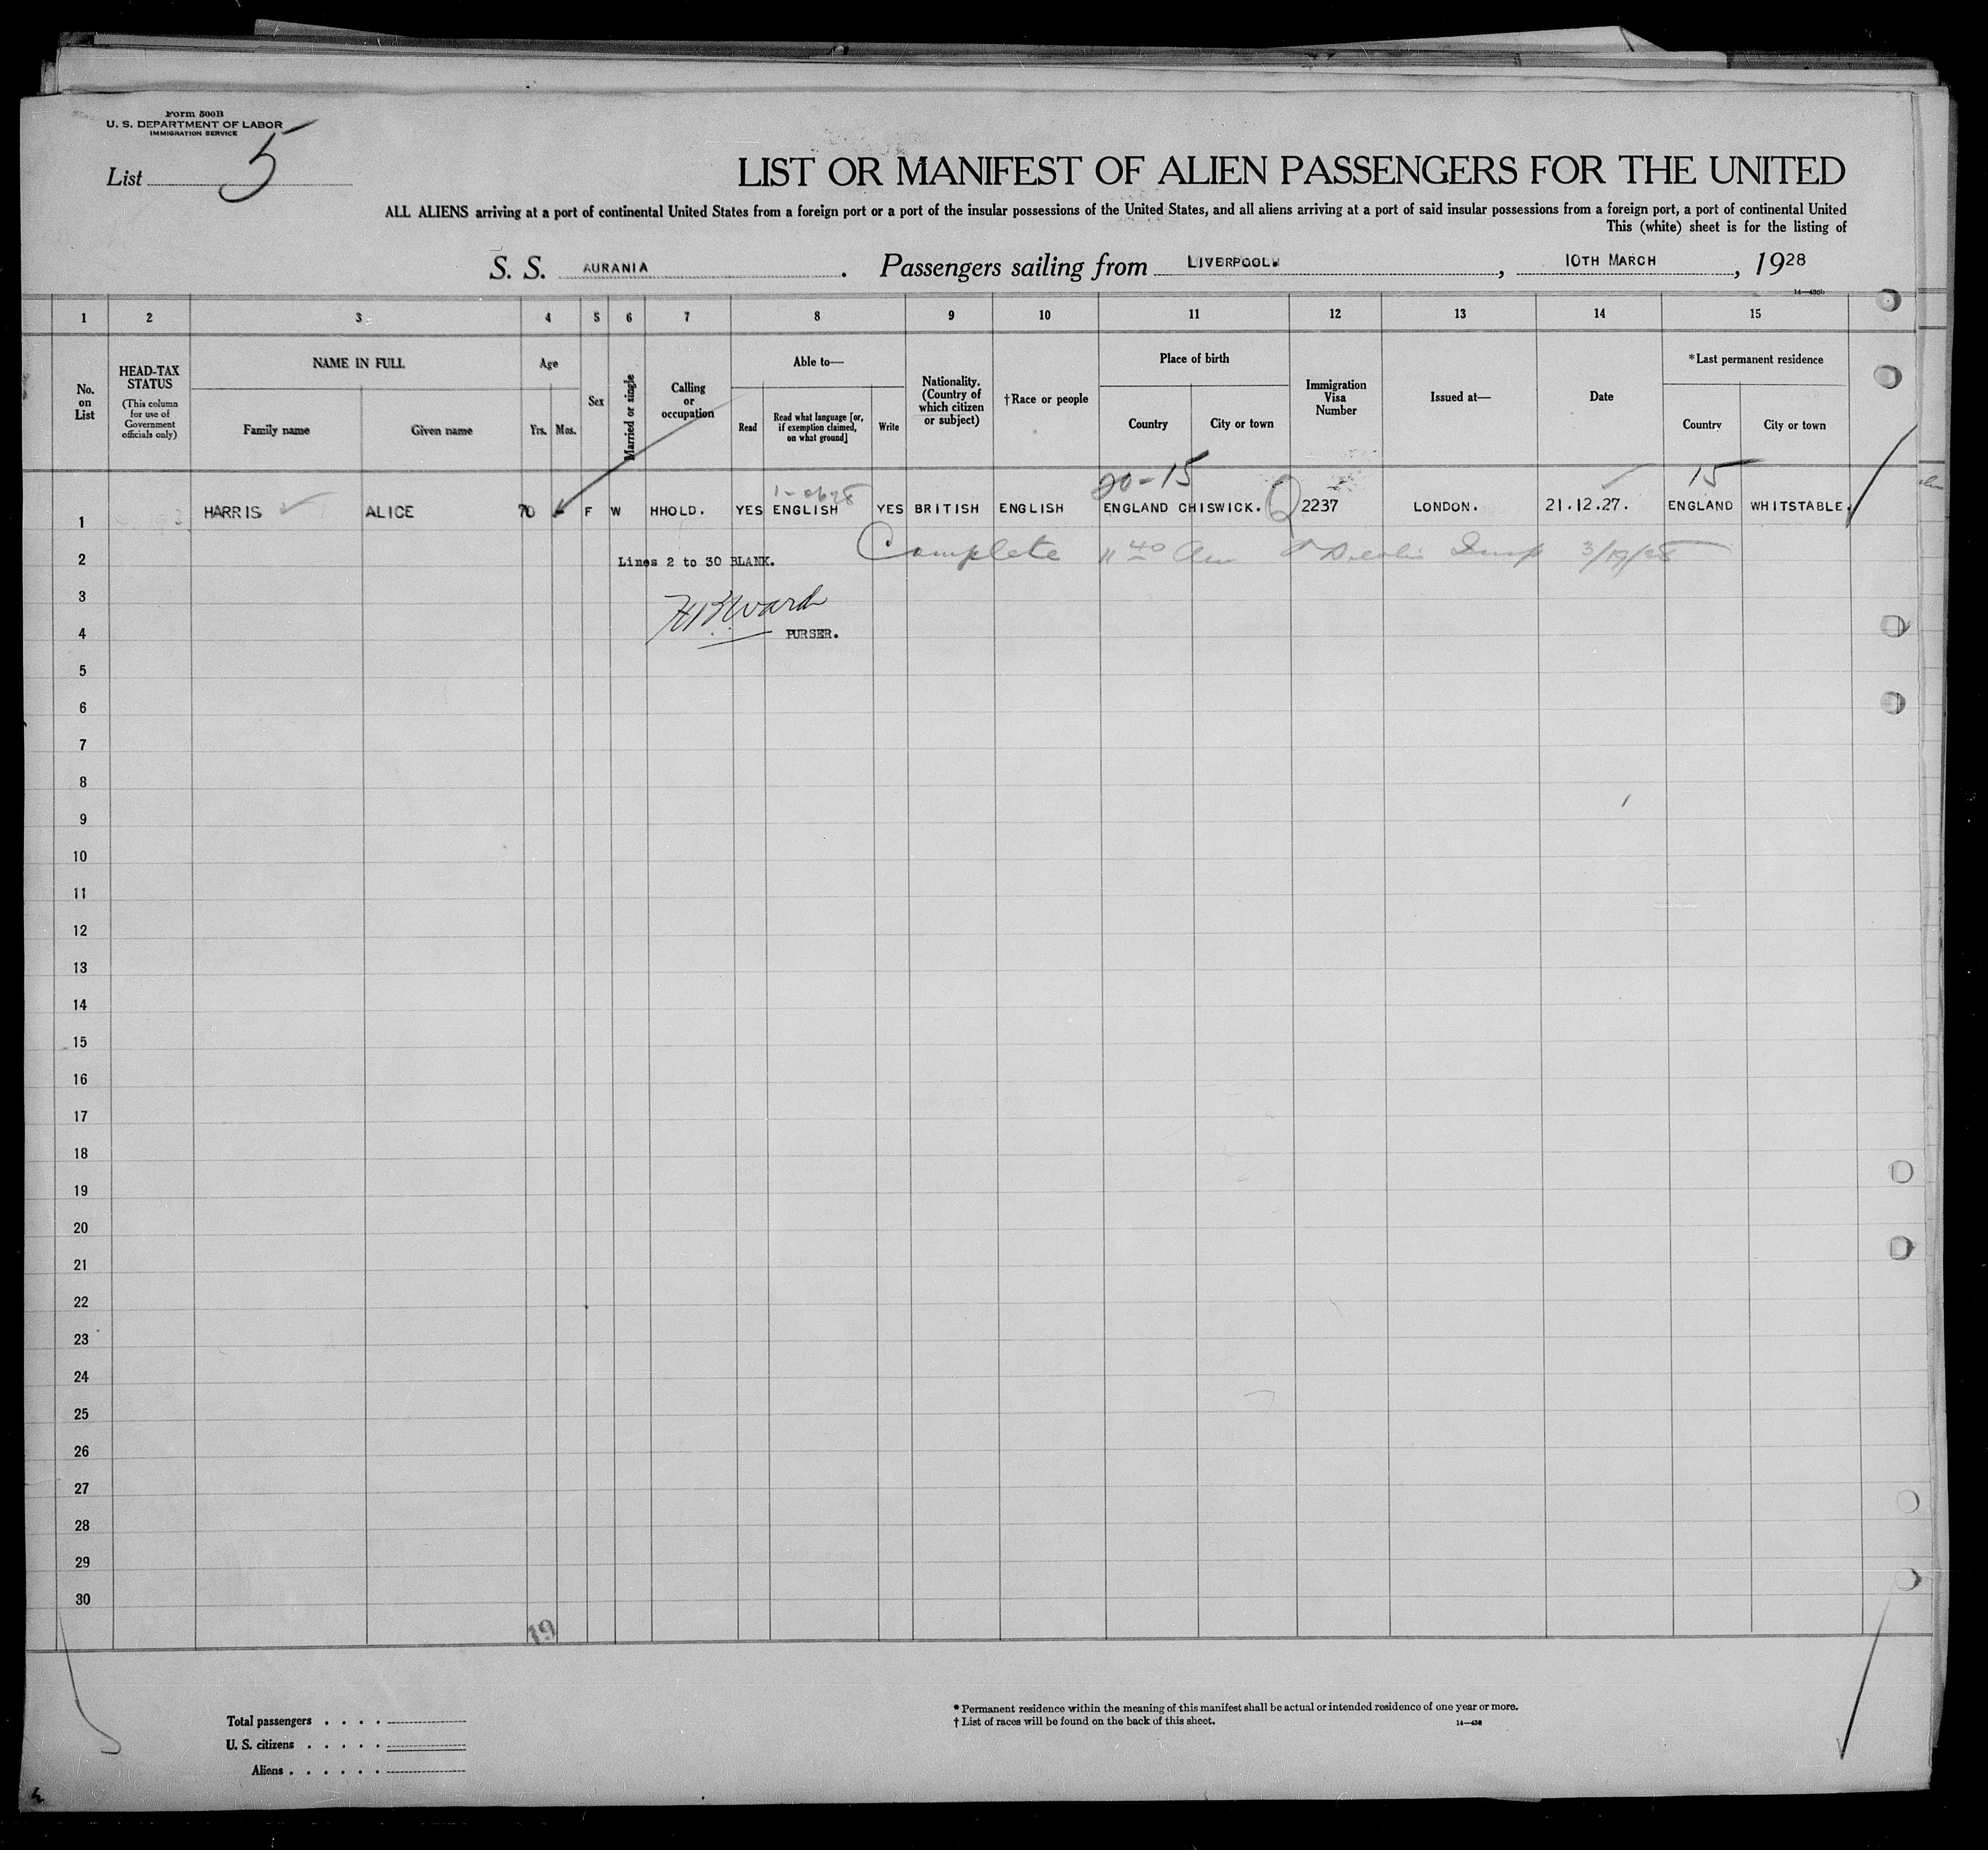 Form 500B
U. S. DEPARTMENT OF LABOR
IMMIGRATION SERVICE
List 5
LIST OR MANIFEST OF ALIEN PASSENGERS FOR THE UNITED
ALL ALIENS arriving at a port of continental United States from a foreign port or a port of the insular possessions of the United States, and all aliens arriving at a port of said insular possessions from a foreign port, a port of continental United
This (white) sheet is for the listing of
S. S. AURANIA. Passengers sailing from LIVERPOOL., 10TH MARCH, 1928
1 2 3 4 5 6 7 8 9 10 11 12 13 14 15
No. on List
HEAD-TAX STATUS
(This column for use of Government officials only)
NAME IN FULL
Family name Given name
Age
Yrs. Mos.
Sex
Married or single
Calling or occupation
Able to—
Read Read what language [or, if exemption claimed, on what ground] Write
Nationality. (Country of which citizen or subject)
†Race or people
Place of birth
Country City or town
Immigration Visa Number
Issued at—
Date
*Last permanent residence
Country City or town
20-15 15
1 HARRIS ALICE 70 - F W HHOLD. YES ENGLISH YES BRITISH ENGLISH ENGLAND CHISWICK. 2237 LONDON. 21.12.27. ENGLAND WHITSTABLE.
2 Lines 2 to 30 BLANK. Complete 11 40 am Insp 3/19/28
3 Ward
4 PURSER.
5
6
7
8
9
10
11
12
13
14
15
16
17
18
19
20
21
22
23
24
25
26
27
28
29
30
19
Total passengers . . . .
U. S. citizens . . . . .
Aliens . . . . . .
* Permanent residence within the meaning of this manifest shall be actual or intended residence of one year or more.
† List of races will be found on the back of this sheet.